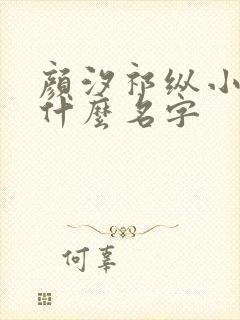 顏汐祁纵小
什麼名字
何辜